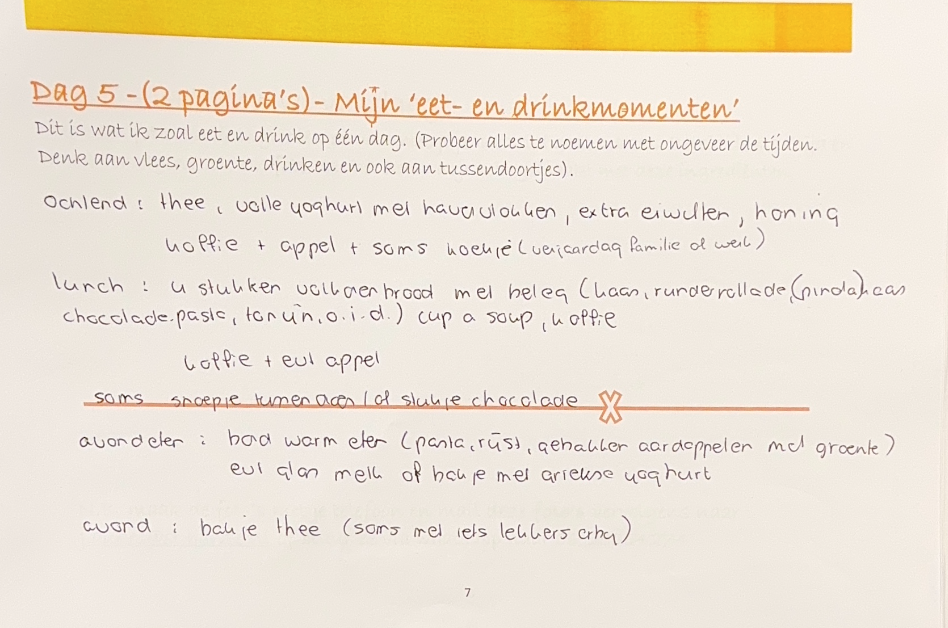 Dag 5 - (2 pagina's) - Mijn 'eet- en drinkmomenten'
Dit is wat ik zoal eet en drink op één dag. (Probeer alles te noemen met ongeveer de tijden.
Denk aan vlees, groente, drinken en ook aan tussendoortjes).
ochtend : thee, volle yoghurt met havervlokken, extra eiwitten, honing
koffie + appel + soms koekje (verjaardag familie of werk)
lunch : 4 stukken volkoren brood met beleg (kaas, runderrollade, (pinda)kaas
chocolade pasta, tonijn, o.i.d.) cup a soup, koffie
koffie + evt appel
soms snoepje tumen door / of stukje chocolade
avondeten : bord warm eten (pasta, rijst, gebakken aardappelen met groente)
evt glas melk of bakje met griekse yoghurt
avond : bakje thee (soms met iets lekkers erbij)
7